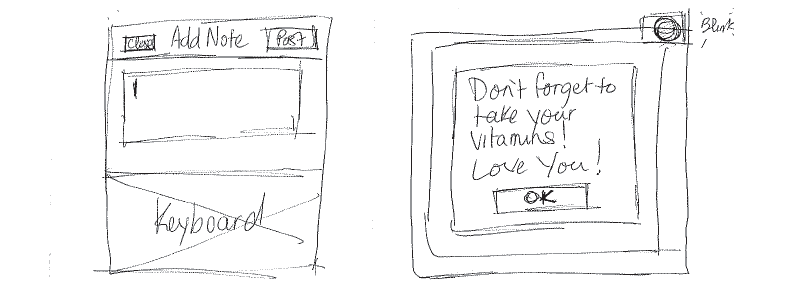 Close Add Note Post
Keyboard
Blink
Don't forget to
take your
vitamins!
Love You!
OK